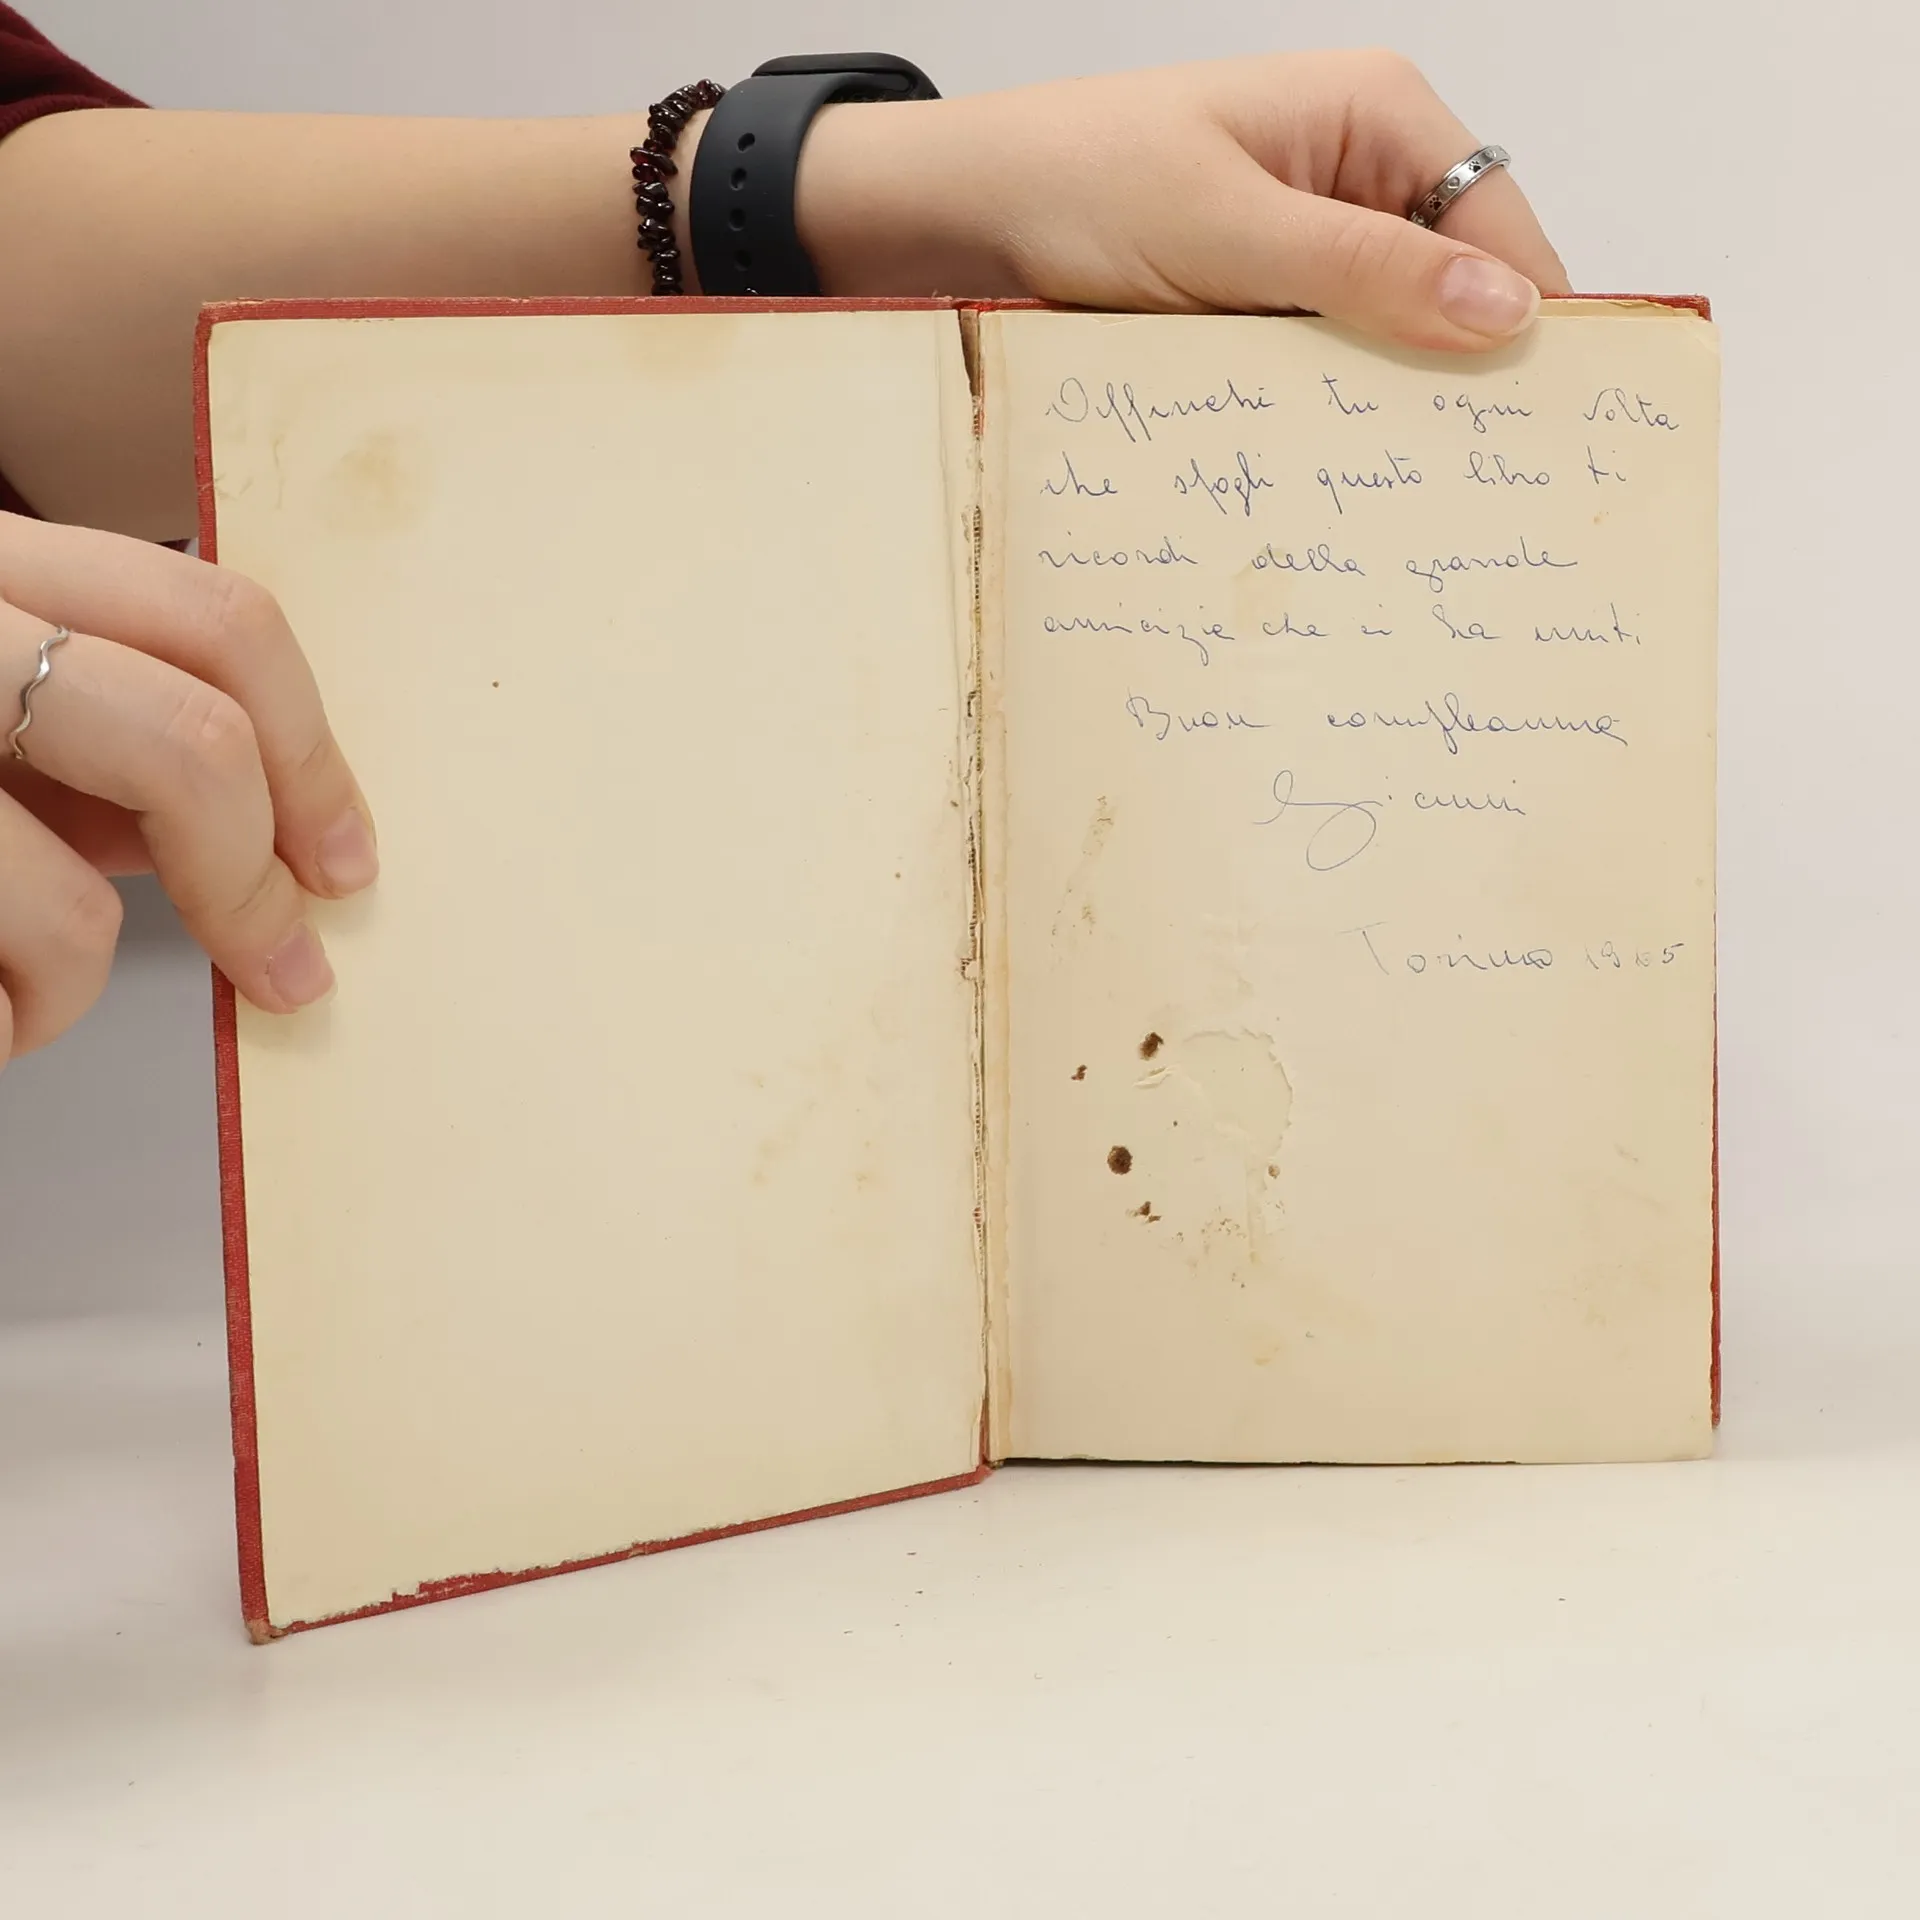 Affinchè tu ogni volta
che sfogli questo libro ti
ricordi della grande
amicizia che ci ha uniti
Buon compleanno
Gianni
Torino 1965